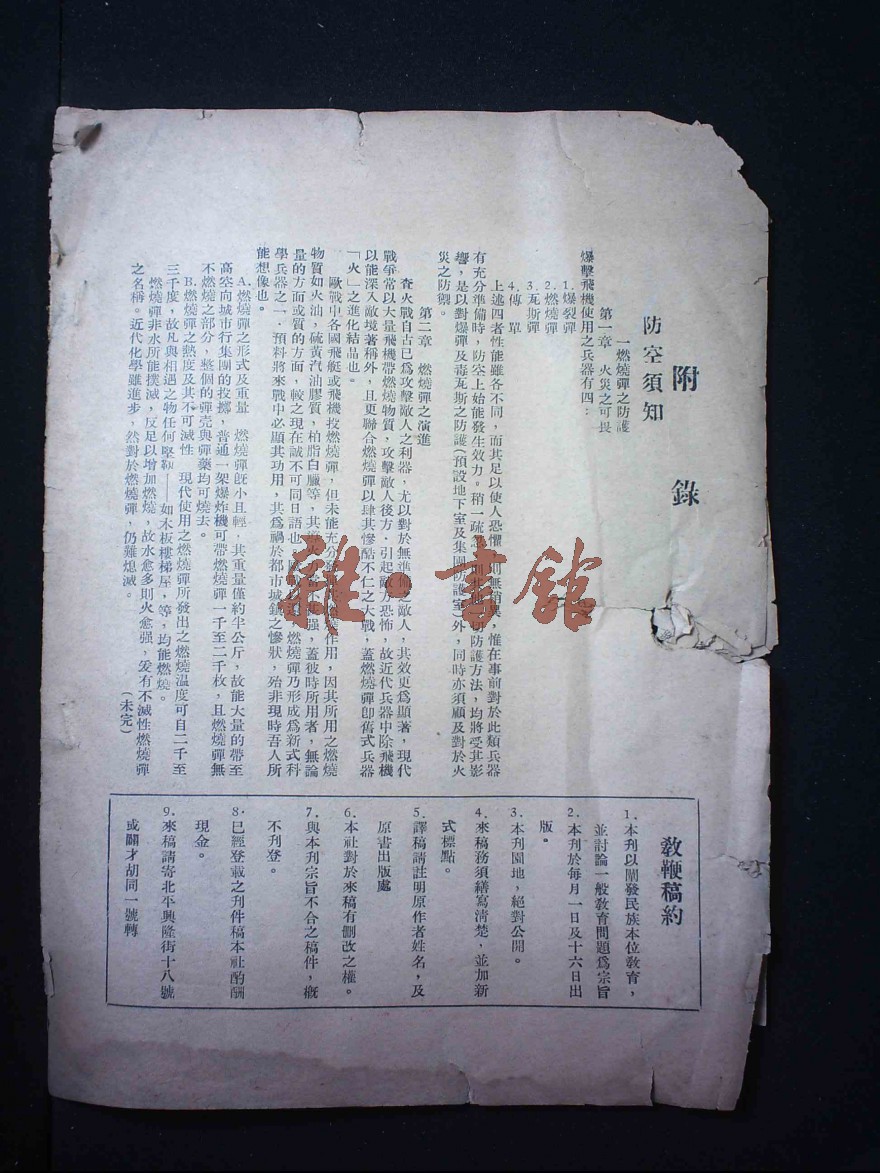 附　錄
防空須知
一燃燒彈之防護
第一章　火災之可畏
爆擊飛機使用之兵器有四：
1.爆裂彈
2.燃燒彈
3.瓦斯彈
4.傳　單
上述四者性能雖各不同，而其足以使人恐懼
則無稍異，惟在事前對於此類兵器
有充分準備時，防空上始能發生效力。稍一疏
防護方法，均將受其影
響，是以對爆彈及毒瓦斯之防護（預設地下室及集團防護室）外，同時亦須顧及對於火
災之防禦。
第二章　燃燒彈之演進
查火戰自古已爲攻擊敵人之利器，尤以對於無準備之敵人，其效更爲顯著，現代
戰爭常以大量飛機帶燃燒物質，攻擊敵人後方，引起敵方恐怖，故近代兵器中除飛機
以能深入敵境著稱外，且更聯合燃燒彈以肆其慘酷不仁之大戰，蓋燃燒彈卽舊式兵器
「火」之進化結晶也。
歐戰中各國飛艇或飛機投燃燒彈，但未能充分
作用，因其所用之燃燒
物質如火油，硫黃汽油膠質，柏脂白臘等，其
强，蓋彼時所用者，無論
量的方面或質的方面，較之現在誠不可同日語也，
燃燒彈乃形成爲新式科
學兵器之一．預料將來戰中必顯其功用，其爲禍於都市城鎮之慘狀，殆非現時吾人所
能想像也。
A.燃燒彈之形式及重量　燃燒彈旣小且輕，其重量僅約半公斤，故能大量的帶至
高空向城市行集團的投擲，普通一架爆炸機可帶燃燒彈一千至二千枚，且燃燒彈無
不燃燒之部分，整個的彈壳與彈藥均可燒去。
B.燃燒彈之熱度及其不可滅性　現代使用之燃燒彈所發出之燃燒温度可自二千至
三千度，故凡與相遇之物任何堅靱——如木板樓梯屋，等，均能燃燒。
燃燒彈非水所能撲滅，反足以增加燃燒，故水愈多則火愈强，爰有不滅性燃燒彈
之名稱。近代化學雖進步，然對於燃燒彈，仍難熄滅。
（未完）
教鞭稿約
1.本刋以闡發民族本位敎育，
並討論一般敎育問題爲宗旨
2.本刋於每月一日及十六日出
版。
3.本刋園地，絕對公開。
4.來稿務須繕寫淸楚，並加新
式標點。
5.譯稿請註明原作者姓名，及
原書出版處
6.本社對於來稿有删改之權。
7.與本刋宗旨不合之稿件，槪
不刋登。
8.已經登載之刋件稿本社酌酬
現金。
9.來稿請寄北平興隆街十八號
或關才胡同一號轉
雜·書館